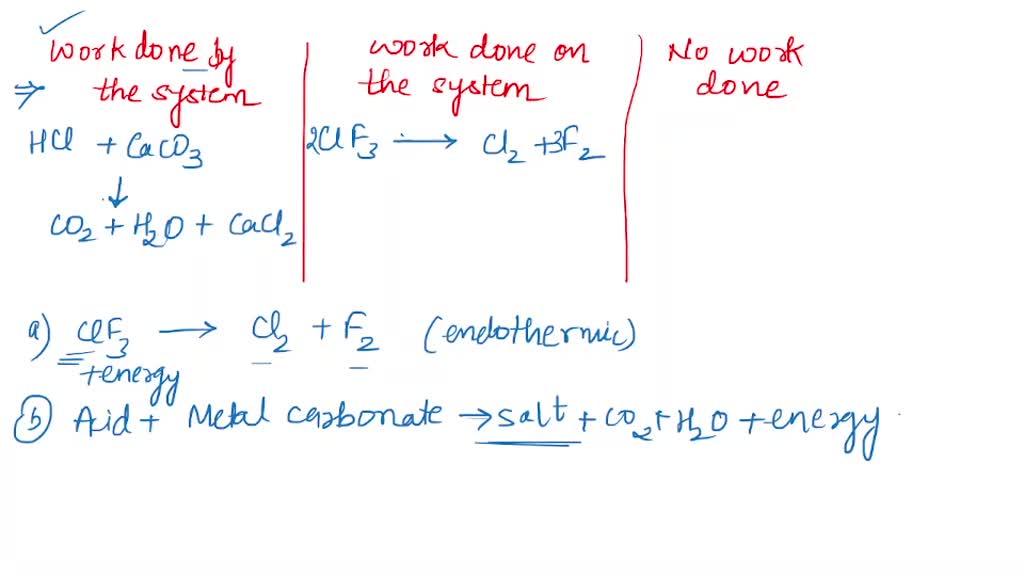 work done by
the system
work done on
the system
No work
done
⇒
HCl + CaCO3
↓
CO2 + H2O + CaCl2
2ClF3 → Cl2 + 3F2
a) ClF3 → Cl2 + F2 (endothermic)
+energy
b) Acid + Metal carbonate → salt + CO2 + H2O + energy